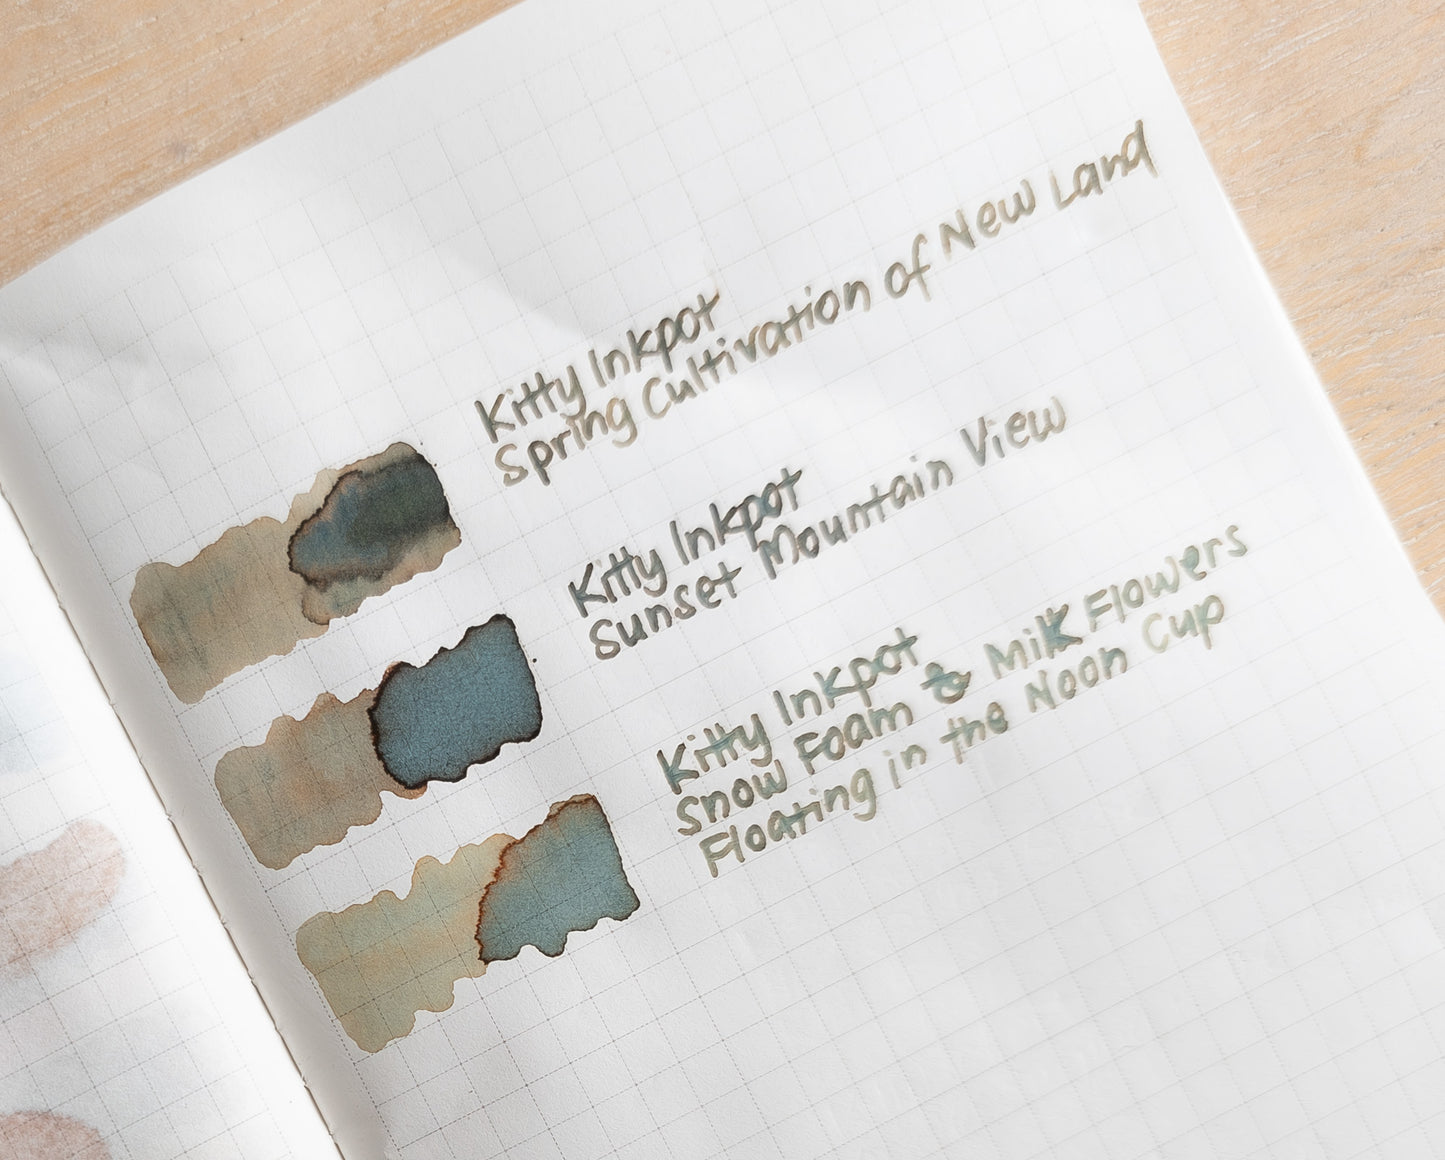 Kitty Inkpot
Spring Cultivation of New Land
Kitty Inkpot
Sunset Mountain View
Kitty Inkpot
Snow Foam & Milk Flowers
Floating in the Noon Cup